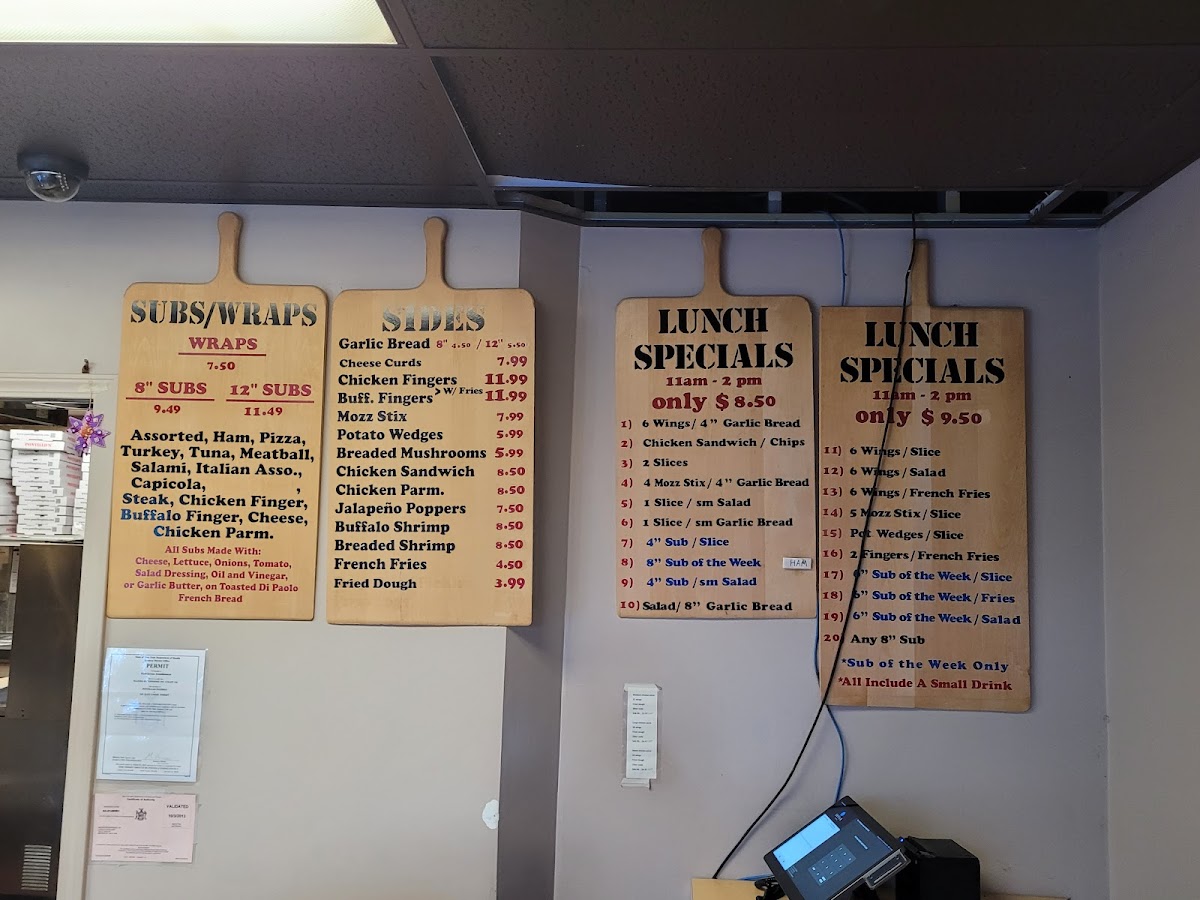 SUBS/WRAPS
WRAPS
7.50
8" SUBS 12" SUBS
9.49 11.49
Assorted, Ham, Pizza,
Turkey, Tuna, Meatball,
Salami, Italian Asso.,
Capicola, ,
Steak, Chicken Finger,
Buffalo Finger, Cheese,
Chicken Parm.
All Subs Made With:
Cheese, Lettuce, Onions, Tomato,
Salad Dressing, Oil and Vinegar,
or Garlic Butter, on Toasted Di Paolo
French Bread
SIDES
Garlic Bread 8" 4.50 / 12" 5.50
Cheese Curds 7.99
Chicken Fingers 11.99
Buff. Fingers > W/ Fries 11.99
Mozz Stix 7.99
Potato Wedges 5.99
Breaded Mushrooms 5.99
Chicken Sandwich 8.50
Chicken Parm. 8.50
Jalapeño Poppers 7.50
Buffalo Shrimp 8.50
Breaded Shrimp 8.50
French Fries 4.50
Fried Dough 3.99
LUNCH
SPECIALS
11am - 2 pm
only $ 8.50
1) 6 Wings/ 4" Garlic Bread
2) Chicken Sandwich / Chips
3) 2 Slices
4) 4 Mozz Stix/ 4" Garlic Bread
5) 1 Slice / sm Salad
6) 1 Slice / sm Garlic Bread
7) 4" Sub / Slice
8) 8" Sub of the Week HAM
9) 4" Sub / sm Salad
10) Salad/ 8" Garlic Bread
LUNCH
SPECIALS
11am - 2 pm
only $ 9.50
11) 6 Wings / Slice
12) 6 Wings / Salad
13) 6 Wings / French Fries
14) 5 Mozz Stix / Slice
15) Pot Wedges / Slice
16) 2 Fingers / French Fries
17) 6" Sub of the Week / Slice
18) 6" Sub of the Week / Fries
19) 6" Sub of the Week / Salad
20) Any 8" Sub
*Sub of the Week Only
*All Include A Small Drink
PERMIT
VALIDATED